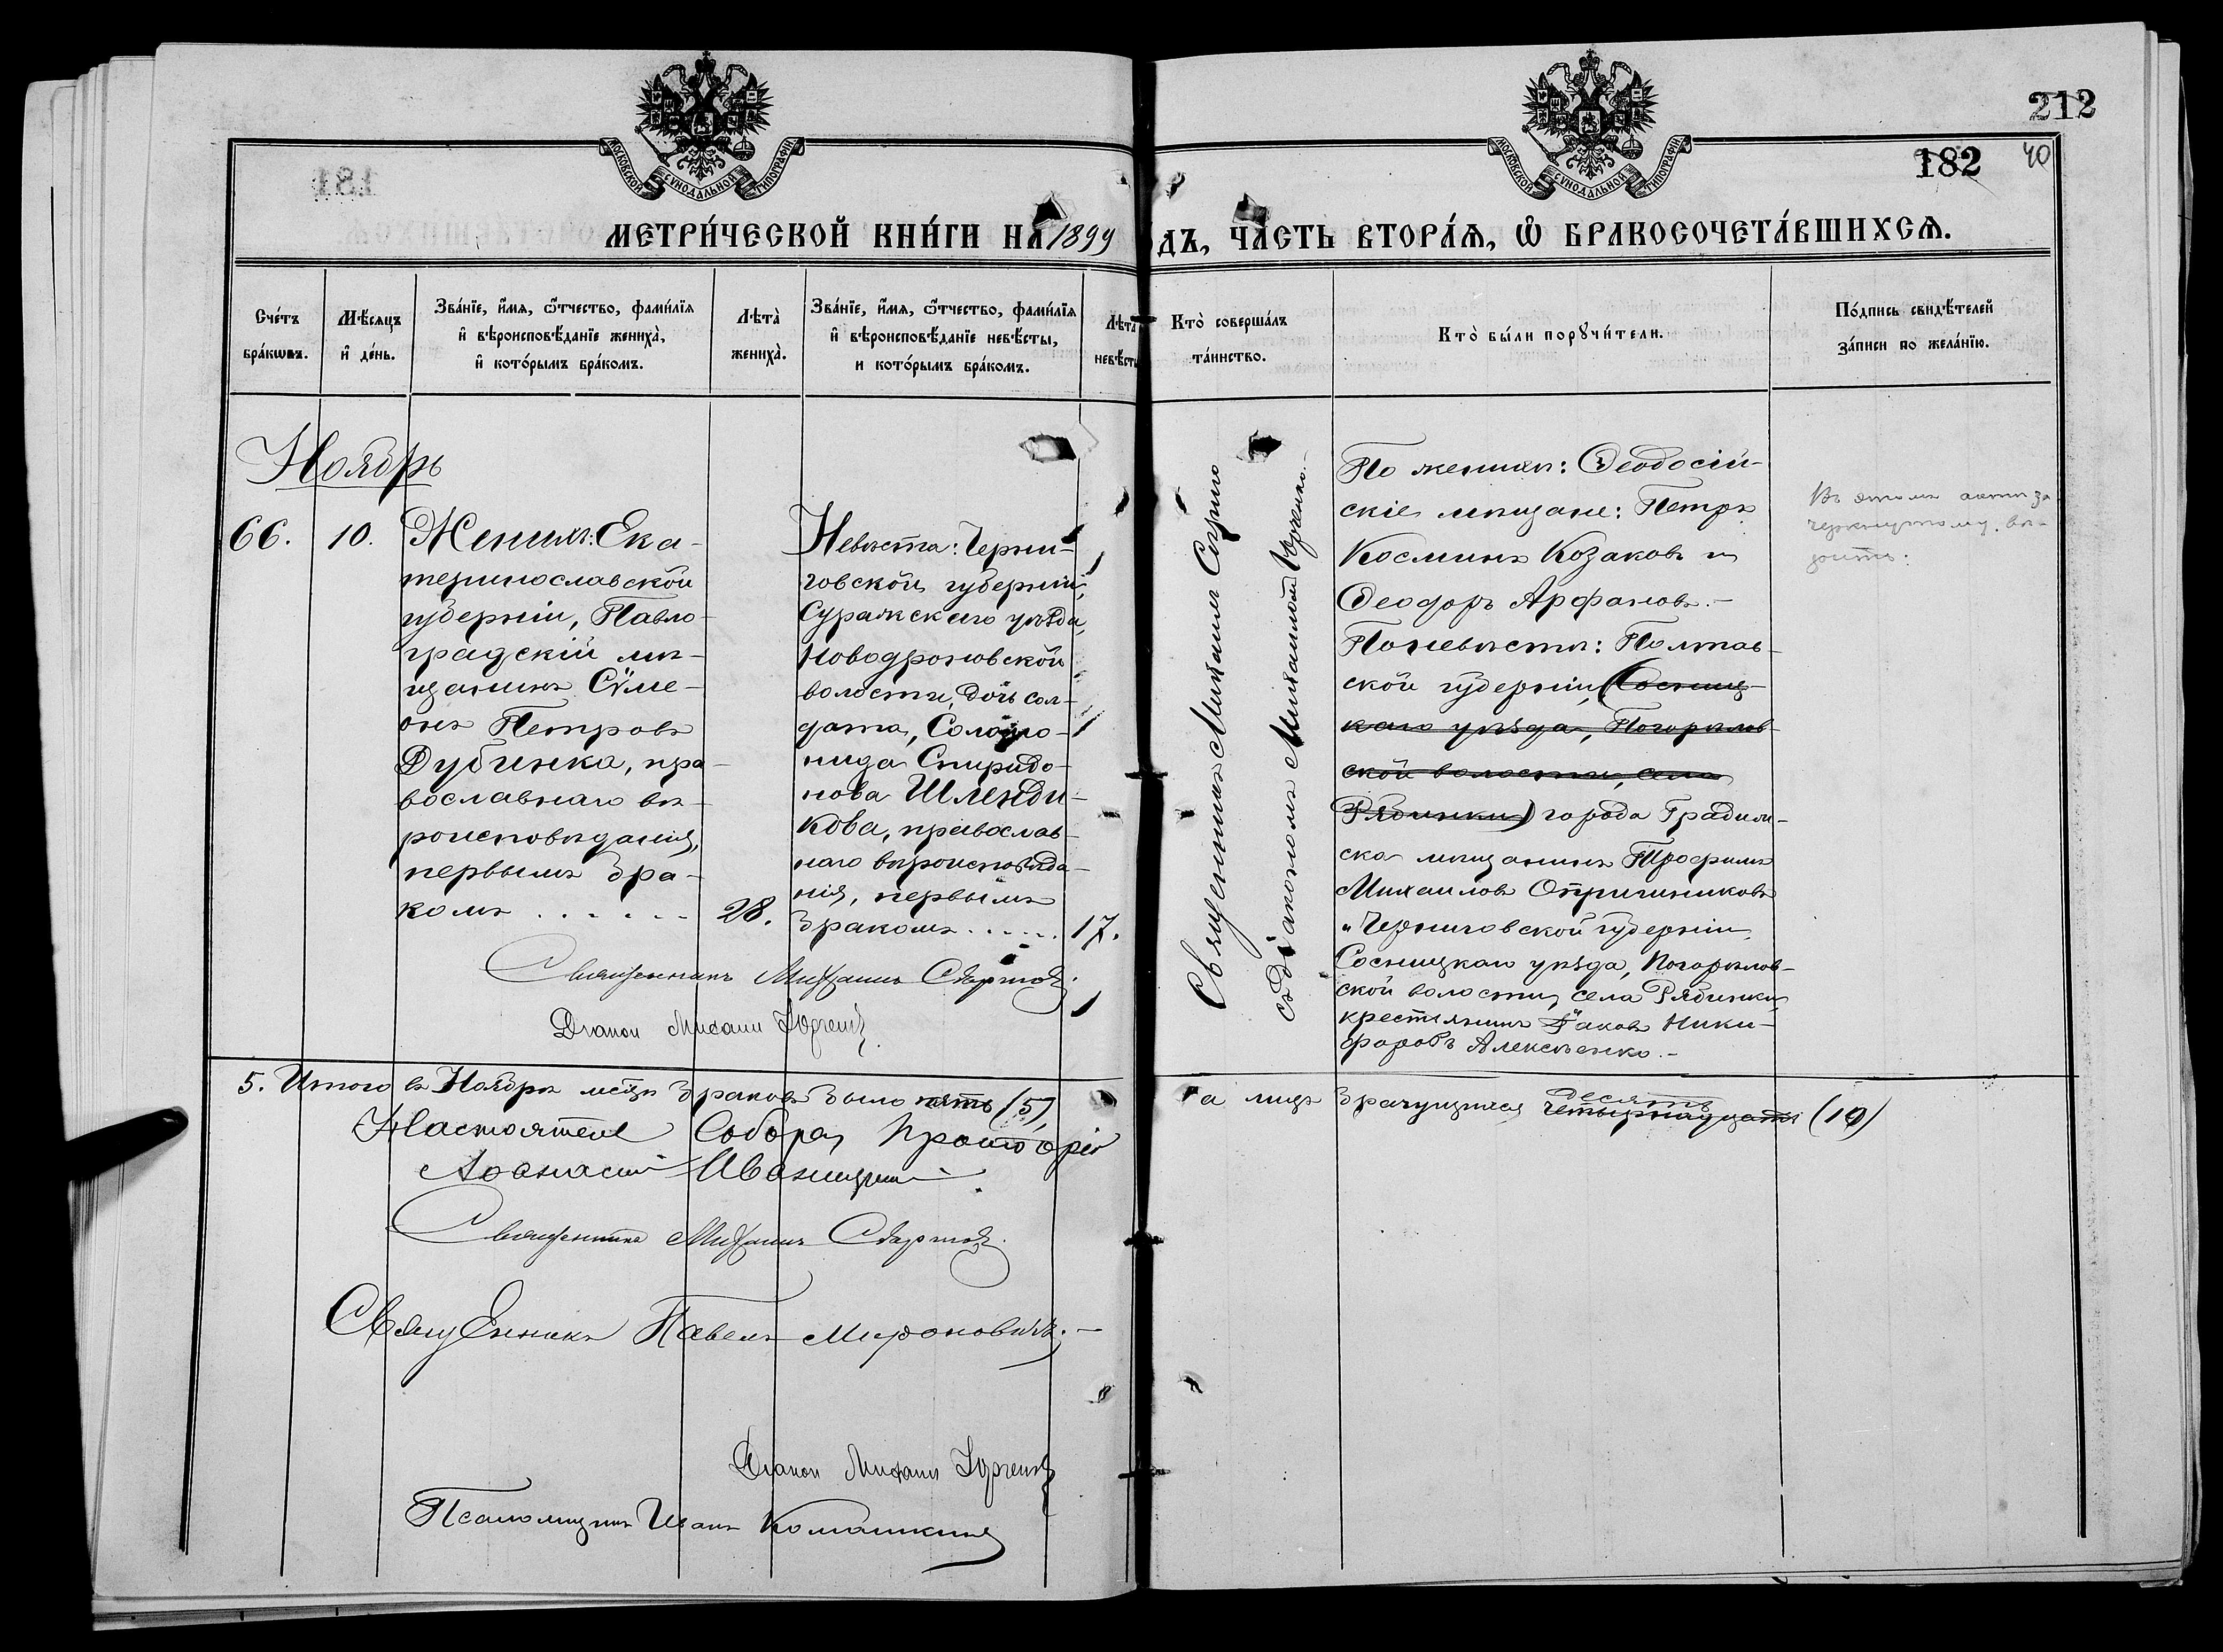 МОСКОВСКОЙ СѴНОДАЛЬНОЙ ТИПОГРАФІИ
МОСКОВСКОЙ СѴНОДАЛЬНОЙ ТИПОГРАФІИ
212
181
182
40
МЕТРИ́ЧЕСКОЙ КНИ́ГИ НА 1899
ДЪ, ЧАСТЬ ВТОРА́Я, Ѽ БРАКОСОЧЕТА́ВШИХСЯ.
Сче́тъ бра́кѡвъ.
Мѣ́сяцъ и҆ де́нь.
Зва́нїе, и҆́мя, ѻ҆́тчество, фами́лїя
и҆ вѣроисповѣ́данїе жениха̀,
и҆ кото́рымъ бра́комъ.
Лѣта̀ жениха̀.
Зва́нїе, и҆́мя, ѻ҆́тчество, фами́лїя
и҆ вѣроисповѣ́данїе невѣ́сты,
и кото́рымъ бра́комъ.
Лѣта невѣсты
Кто̀ соверша́лъ та́инство.
Кто̀ бы́ли порꙋчи́тели.
По́дпись свидѣ́телей за́писи по жела́нїю.
Ноябрь
66.
10.
Женихъ: Ека-
теринославской
губерніи, Павло-
градскій мѣ-
щанинъ Сѵме-
онъ Петровъ
Дубинка, пра-
вославнаго вѣ-
роисповѣданія,
первымъ бра-
комъ . . . . . .
28.
Невѣста: Черни-
говской губерніи,
Суражскаго уѣзда,
Новодроковской
волости, дочь сол-
дата, Соломо-
нида Спиридо-
нова Шленди-
кова, православ-
наго вѣроисповѣда-
нія, первымъ
бракомъ . . . . .
17.
Священникъ Михаилъ
Діаконъ Михаилъ Юрченко
Священникъ Михаилъ
съ діакономъ Михаиломъ Юрченко.-
По женихѣ: Ѳеодосій-
скіе мѣщане: Петръ
Косминъ Козаковъ и
Ѳеодоръ Арфановъ.-
По невѣстѣ: Полтав-
ской губерніи, (Сосниц-
каго уѣзда, Погорѣлов-
ской волости, села
Рябинки) города Градиж-
ска мѣщанинъ Трофимъ
Михаиловъ Опришниковъ
и Черниговской губерніи,
Сосницкаго уѣзда, Погорѣлов-
ской волости, села Рябинки,
крестьянинъ Іаковъ Ники-
форовъ Алексѣенко.-
Въ этомъ актѣ за
черкнутому вѣ-
рить.
5. Итого въ Ноябрѣ мѣсяцѣ браковъ было пять (5),
а лицъ брачущихся четырнадцать десять (10)
Настоятель Собора, Протоіерей
Аѳанасій Иваницкій
Священникъ Михаилъ
Священникъ Павелъ Мироновичъ.-
Діаконъ Михаилъ Юрченко
Псаломщикъ Иванъ Комашкинъ